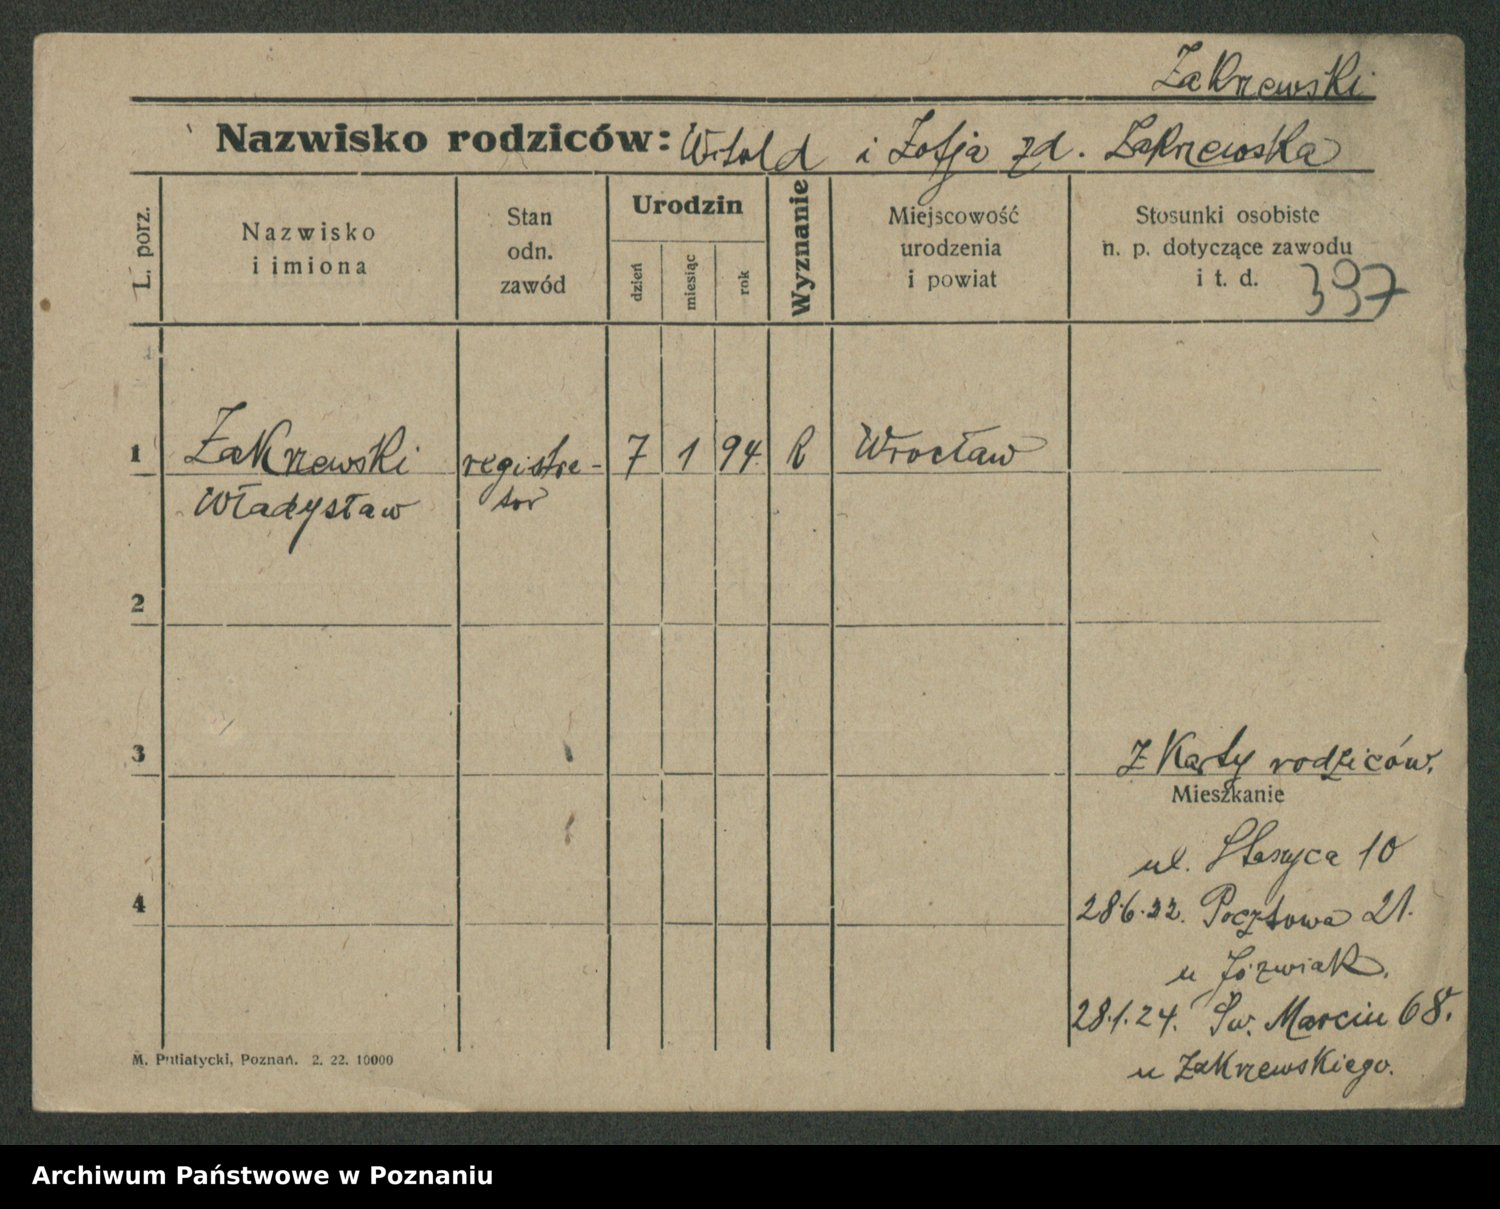 Zakrzewski
Nazwisko rodziców: Witold i Zofja zd. Zakrzewska
L. porz.
Nazwisko
i imiona
Stan
odn.
zawód
Urodzin
dzień
miesiąc
rok
Wyznanie
Miejscowość
urodzenia
i powiat
Stosunki osobiste
n. p. dotyczące zawodu
i t. d.
397
1 Zakrzewski registra- 7 1 94 R Wrocław
Władysław tor
2
3
Z Karty rodziców.
Mieszkanie
ul. Staszyca 10
4
28.6.22. Pocztowa 21.
u Józwiak.
28.1.24. Św. Marcin 68.
u Zakrzewskiego.
M. Putiatycki, Poznań. 2. 22. 10000
Archiwum Państwowe w Poznaniu